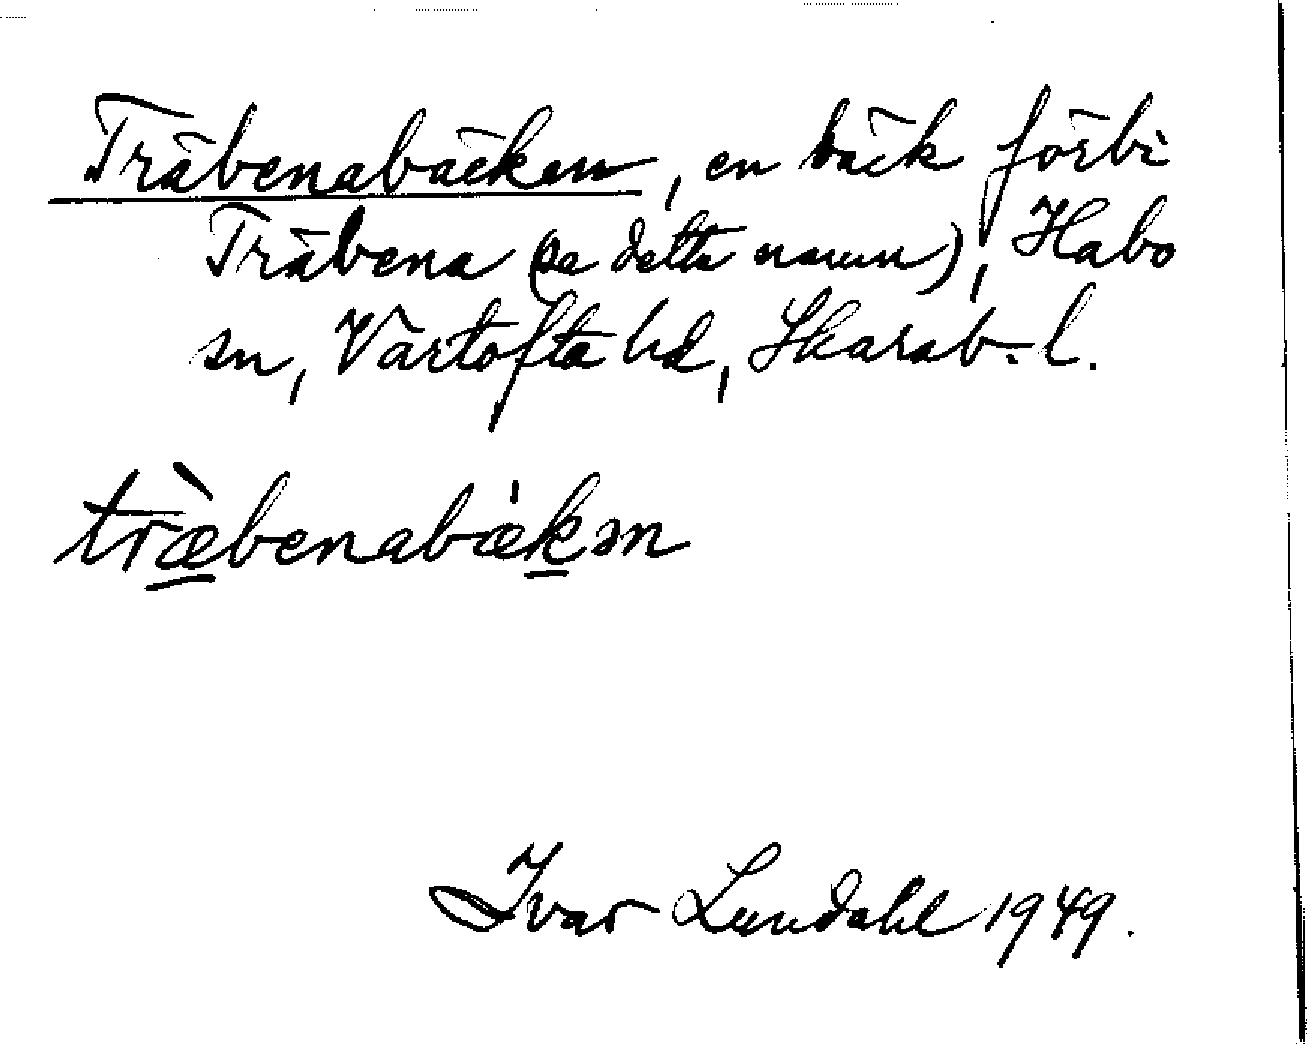 Träbenabäcken, en bäck förbi
Träbena (se detta namn), Habo
sn, Vartofta hd, Skarab. l.
træ̀benabækən
Ivar Lundahl 1949.